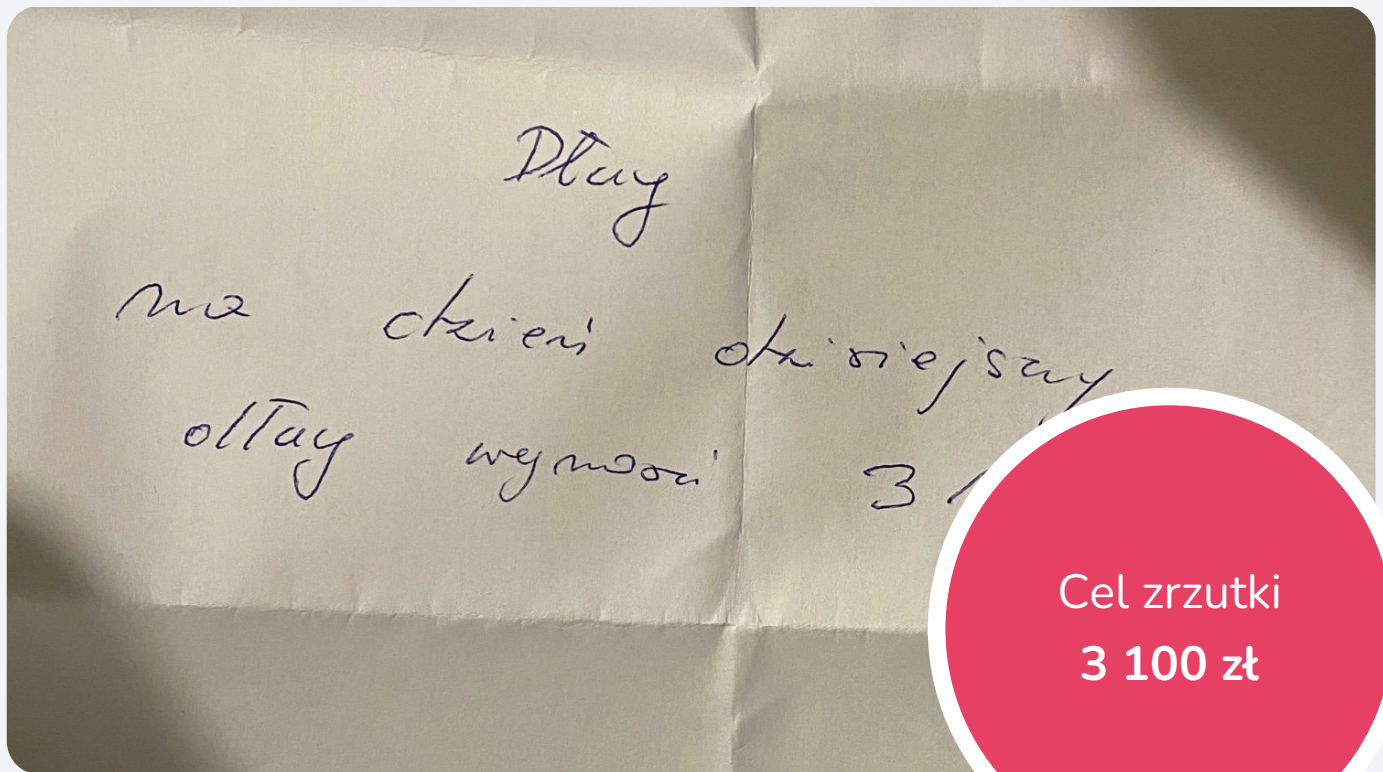 Długi
na dzień dzisiejszy
długi wynosi 31
Cel zrzutki
3 100 zł